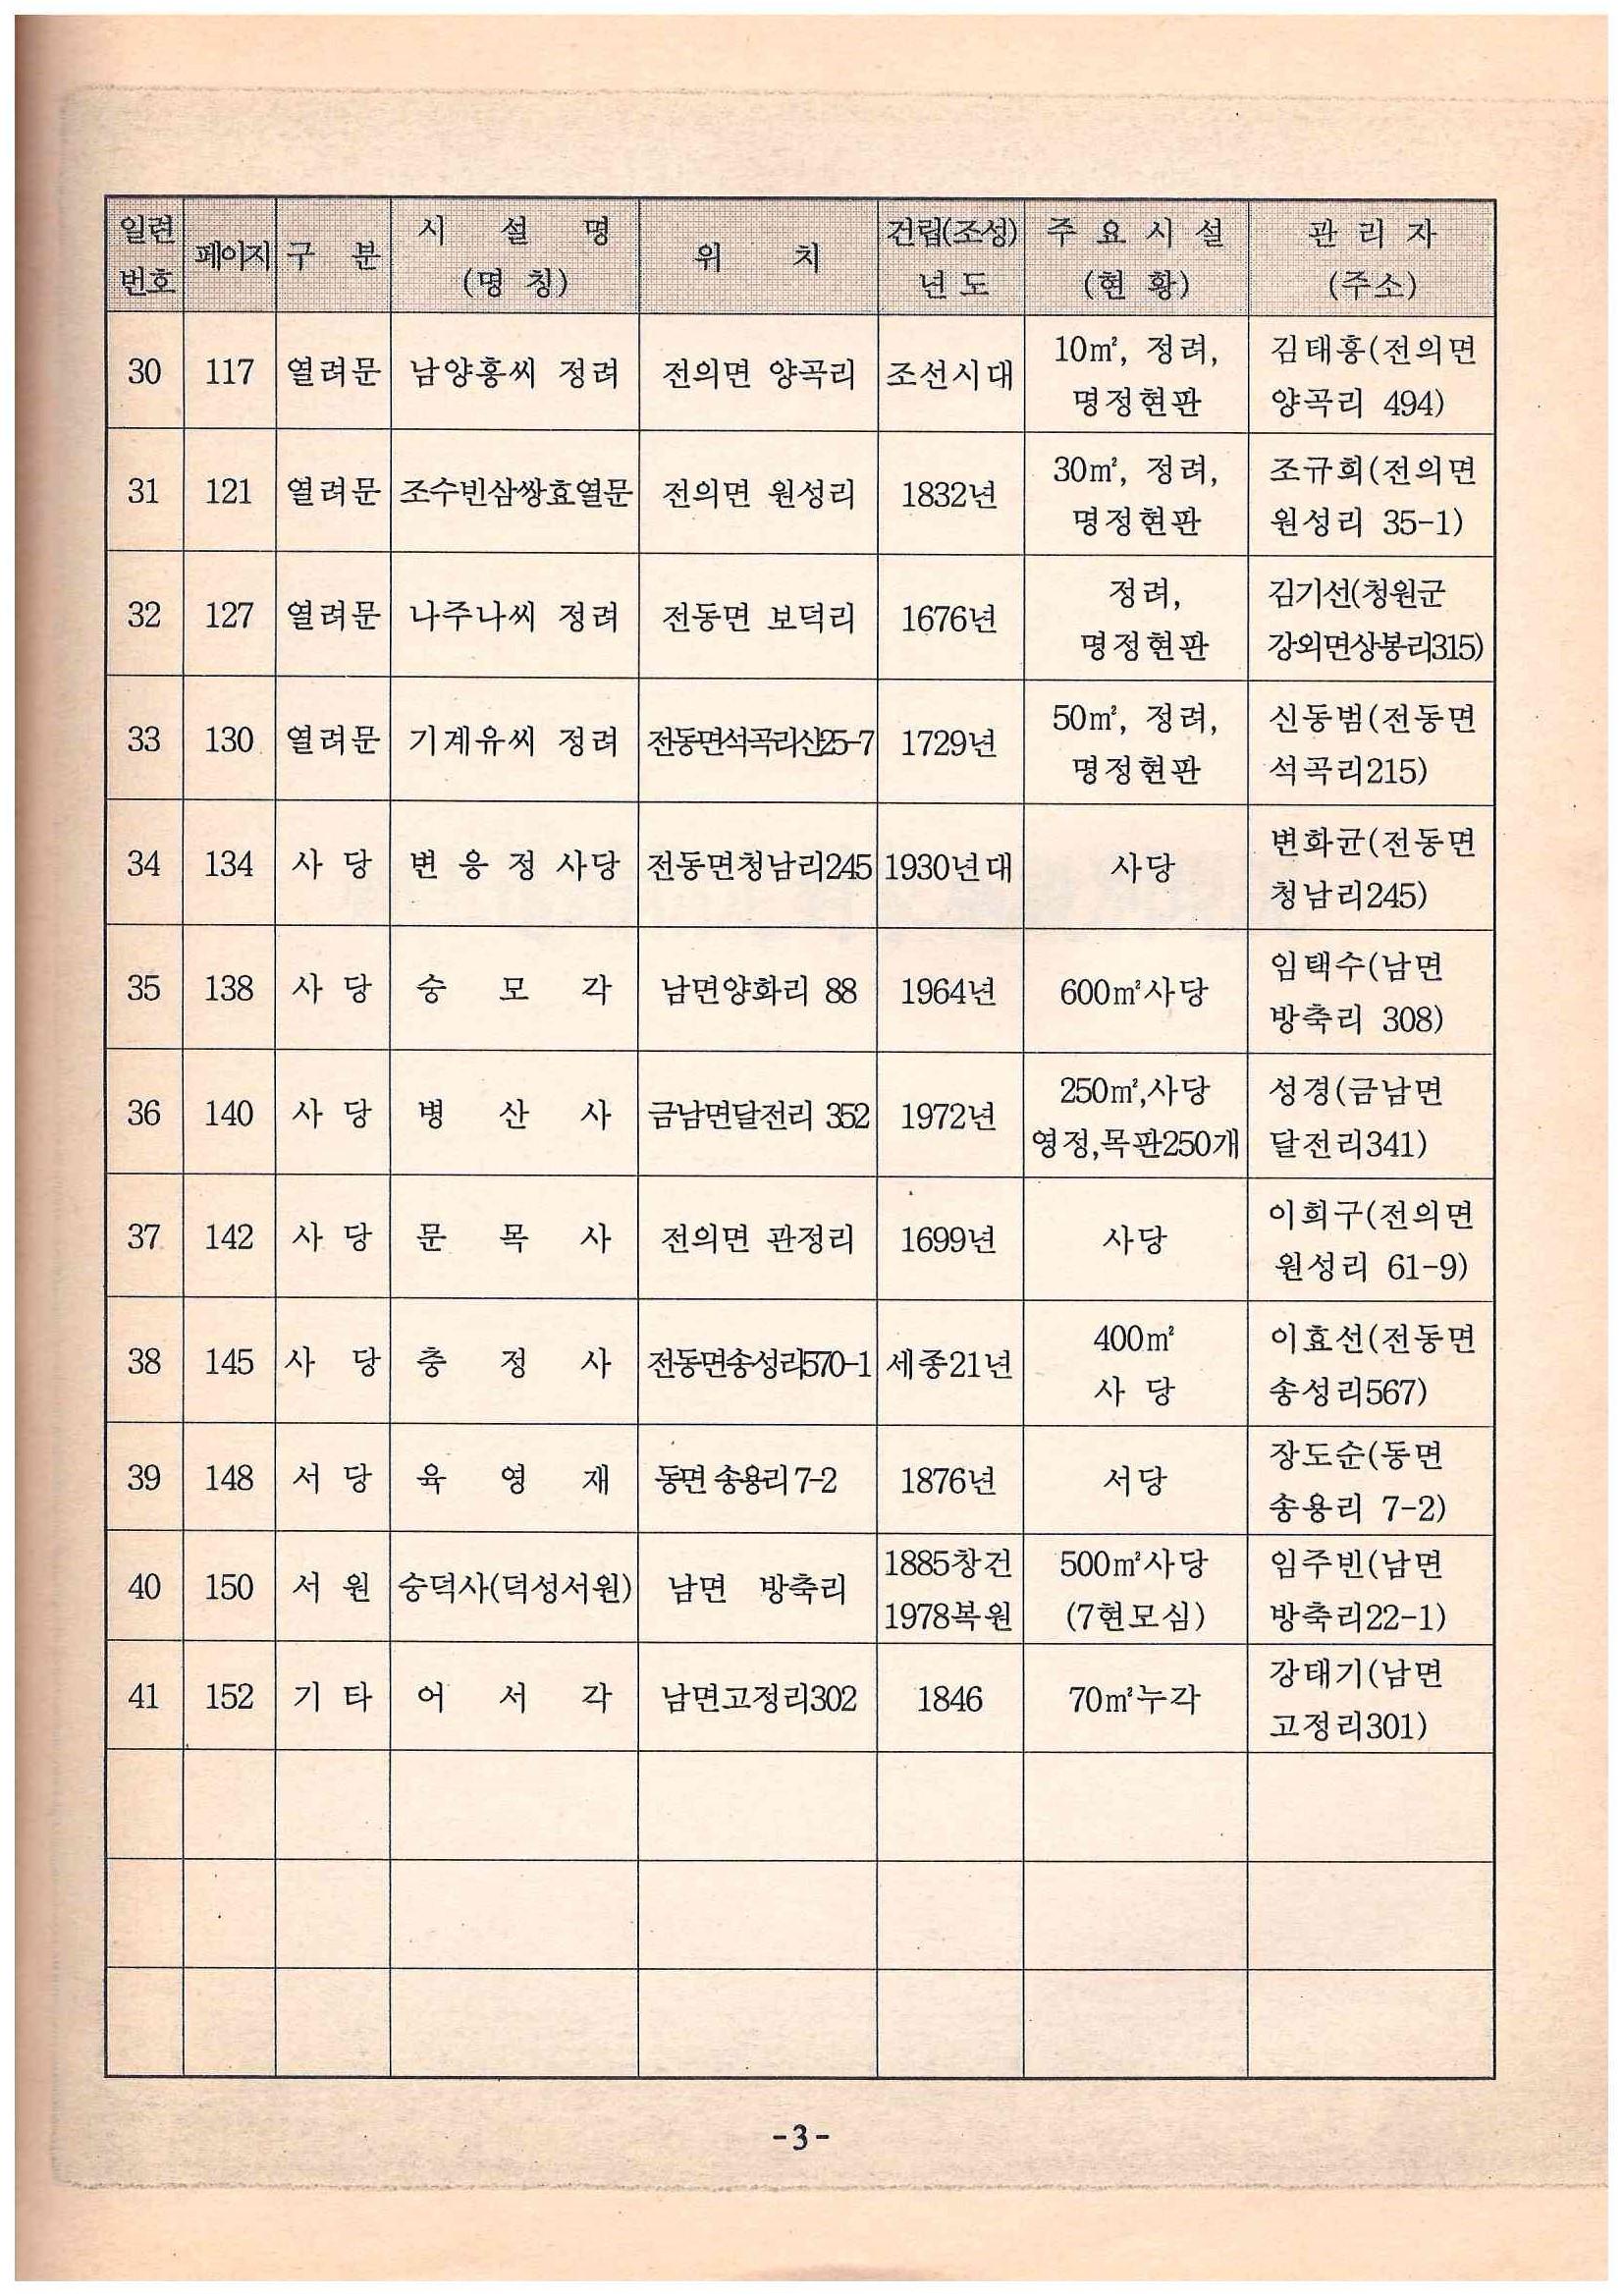 일련 번호 페이지 구 분 시 설 명 (명 칭) 위 치 건립(조성) 년 도 주 요 시 설 (현 황) 관 리 자 (주소)
30 117 열려문 남양홍씨 정려 전의면 양곡리 조선시대 10㎡, 정려, 명정현판 김태흥(전의면 양곡리 494)
31 121 열려문 조수빈삼쌍효열문 전의면 원성리 1832년 30㎡, 정려, 명정현판 조규희(전의면 원성리 35-1)
32 127 열려문 나주나씨 정려 전동면 보덕리 1676년 정려, 명정현판 김기선(청원군 강외면상봉리315)
33 130 열려문 기계유씨 정려 전동면석곡리산25-7 1729년 50㎡, 정려, 명정현판 신동범(전동면 석곡리215)
34 134 사 당 변 응 정 사당 전동면청남리245 1930년대 사당 변화균(전동면 청남리245)
35 138 사 당 숭 모 각 남면양화리 88 1964년 600㎡사당 임택수(남면 방축리 308)
36 140 사 당 병 산 사 금남면달전리 352 1972년 250㎡,사당 영정,목판250개 성경(금남면 달전리341)
37 142 사 당 문 목 사 전의면 관정리 1699년 사당 이희구(전의면 원성리 61-9)
38 145 사 당 충 정 사 전동면송성리570-1 세종21년 400㎡ 사 당 이효선(전동면 송성리567)
39 148 서 당 육 영 재 동면 송용리 7-2 1876년 서당 장도순(동면 송용리 7-2)
40 150 서 원 숭덕사(덕성서원) 남면 방축리 1885창건 1978복원 500㎡사당 (7현모심) 임주빈(남면 방축리22-1)
41 152 기 타 어 서 각 남면고정리302 1846 70㎡누각 강태기(남면 고정리301)
-3-